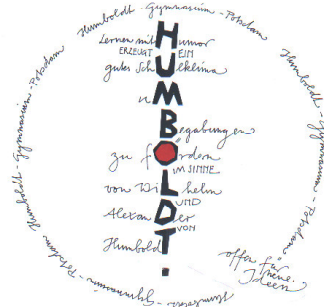 Humboldt - Gymnasium - Potsdam Humboldt - Gymnasium - Potsdam Humboldt - Gymnasium - Potsdam Humboldt - Gymnasium - Potsdam
HUMBOLDT.
Lernen mit Humor
ERZEUGT EIN
gutes Schulklima
um
Begabungen
zu fördern
IM SINNE
von Wilhelm
UND
Alexander
VON
Humboldt.
offen für
neue
Ideen